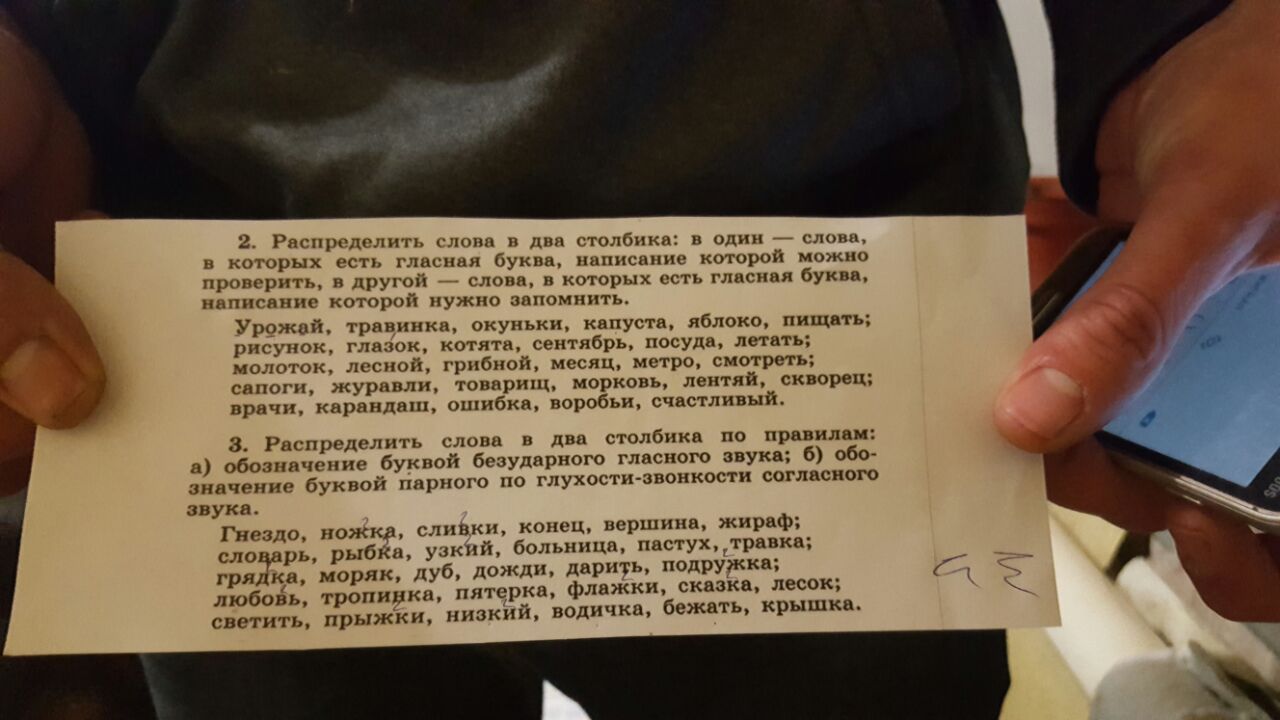 2. Распределить слова в два столбика: в один — слова,
в которых есть гласная буква, написание которой можно
проверить, в другой — слова, в которых есть гласная буква,
написание которой нужно запомнить.
Урожай, травинка, окуньки, капуста, яблоко, пищать;
рисунок, глазок, котята, сентябрь, посуда, летать;
молоток, лесной, грибной, месяц, метро, смотреть;
сапоги, журавли, товарищ, морковь, лентяй, скворец;
врачи, карандаш, ошибка, воробьи, счастливый.
3. Распределить слова в два столбика по правилам:
а) обозначение буквой безударного гласного звука; б) обо-
значение буквой парного по глухости-звонкости согласного
звука.
Гнездо, ножка, сливки, конец, вершина, жираф;
словарь, рыбка, узкий, больница, пастух, травка;
грядка, моряк, дуб, дожди, дарить, подружка;
любовь, тропинка, пятерка, флажки, сказка, лесок;
светить, прыжки, низкий, водичка, бежать, крышка.